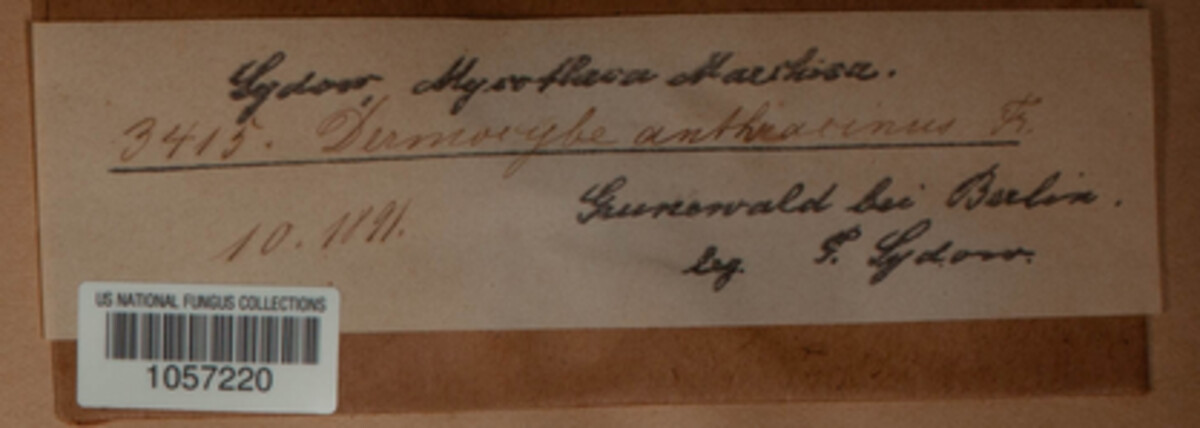 Sydow, Mycotheca Marchica.
3415. Dermocybe anthracinus Fr.
10.1891.
Grunewald bei Berlin.
leg. P. Sydow.
US NATIONAL FUNGUS COLLECTIONS
1057220